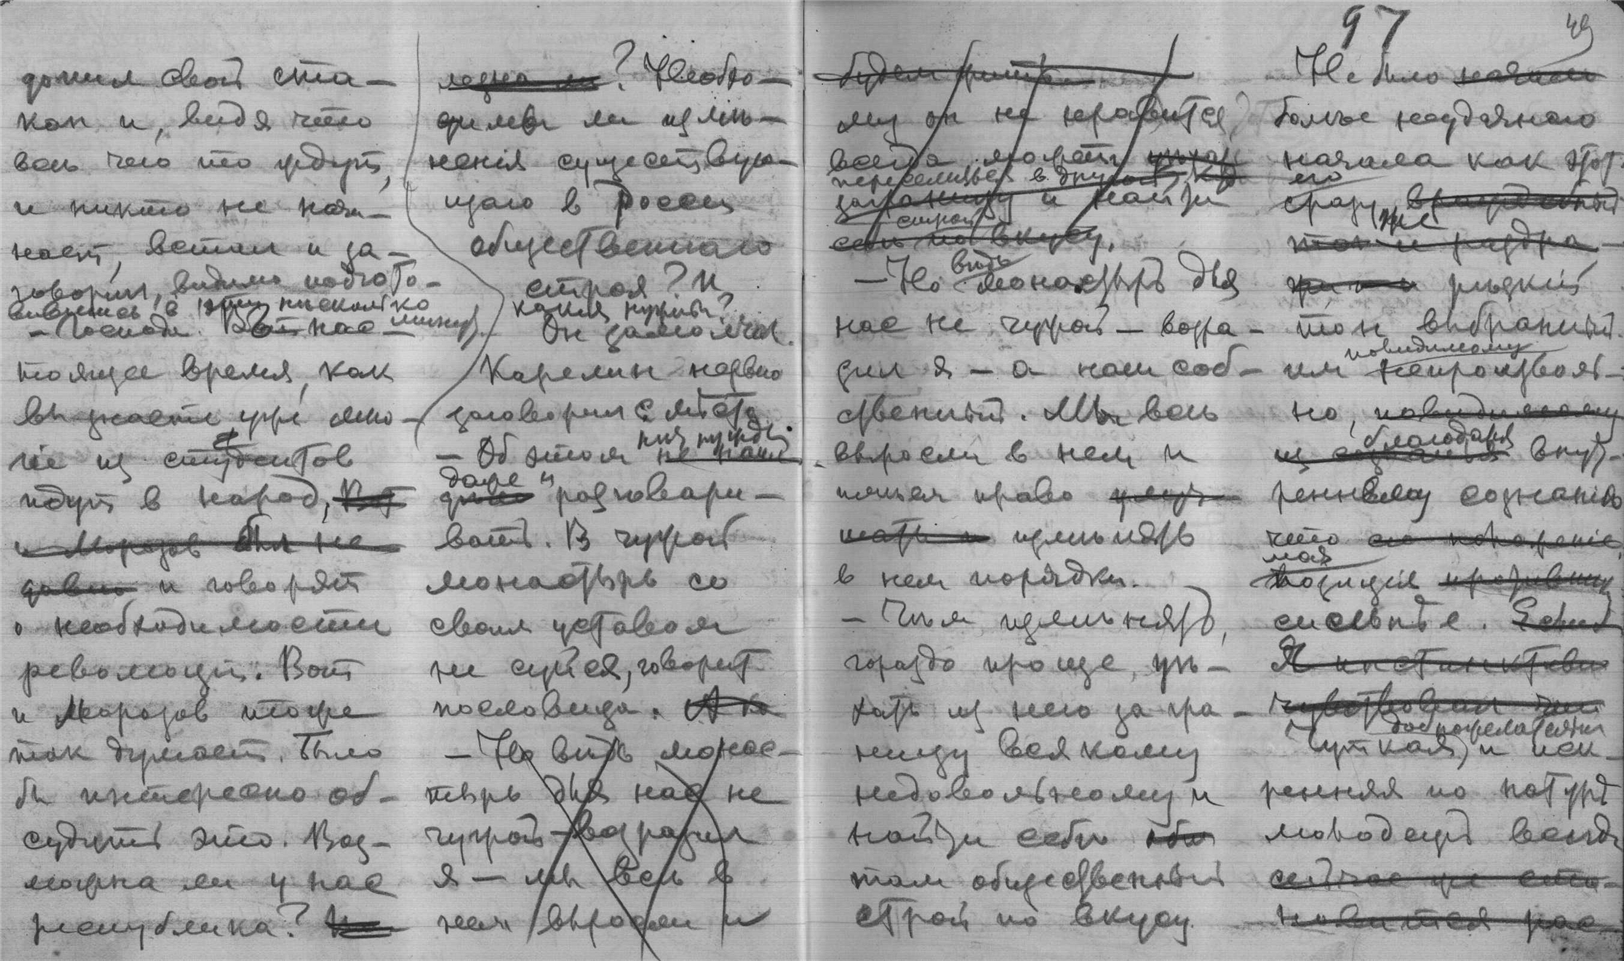 97
49
допил свой ста-
кан и, видя что
всѣ чего то ждут,
и никто не начи-
нает, встал и за-
говорил, видимо подгото-
вившись в эти несколько
минут.
– Господа. В нас-
тоящее время, как
вы знаете уже мно-
гіе из студентов
идут в народ,
и Морозов был не
давно и говорят
о необходимости
революціи. Вот
и Морозов тоже
так думает. Было
бы интересно об-
судить это. Воз-
можна ли у нас
республика?
? Необхо-
димы ли измѣ-
ненія существую-
щаго в Россіи
общественнаго
строя? И
какія нужны?
Он замолчал.
Карелин нервно
заговорил с мѣста
– Об этом
нѣт нужды
даже и разговари-
вать. В чужой
монастырь со
своим уставом
не суйся, говорит
пословица.
– Но вѣдь монас-
тырь для нас не
чужой – возразил
я – мы всѣ в
нем выросли и
му он не нравится,
всегда может
переселиться в другой,
заграницу и найти
строй
по вкусу.
– Но вѣдь монастырь для
нас не чужой – возра-
зил я – а наш соб-
ственный. Мы всѣ
выросли в нем и
имѣем право
измѣнять
в нем порядки.
– Чѣм измѣнять,
гораздо проще уѣ-
хать из него за гра-
ницу всякому
недовольному и
найти себѣ
там общественный
строй по вкусу.
Не было
болѣе неудачнаго
начала как этот
его
сразу
же
рѣзкій
тон выбранный
им повидимому
непроизволь-
но, повидимому
благодаря внут-
реннему сознанію
что
моя
позиція
сильнѣе.
Я инстинктивно
чувствовал
Чуткая, доброжелательная и иск-
ренняя по натурѣ
молодежь всегда
сейчас же ста-
новится рас-